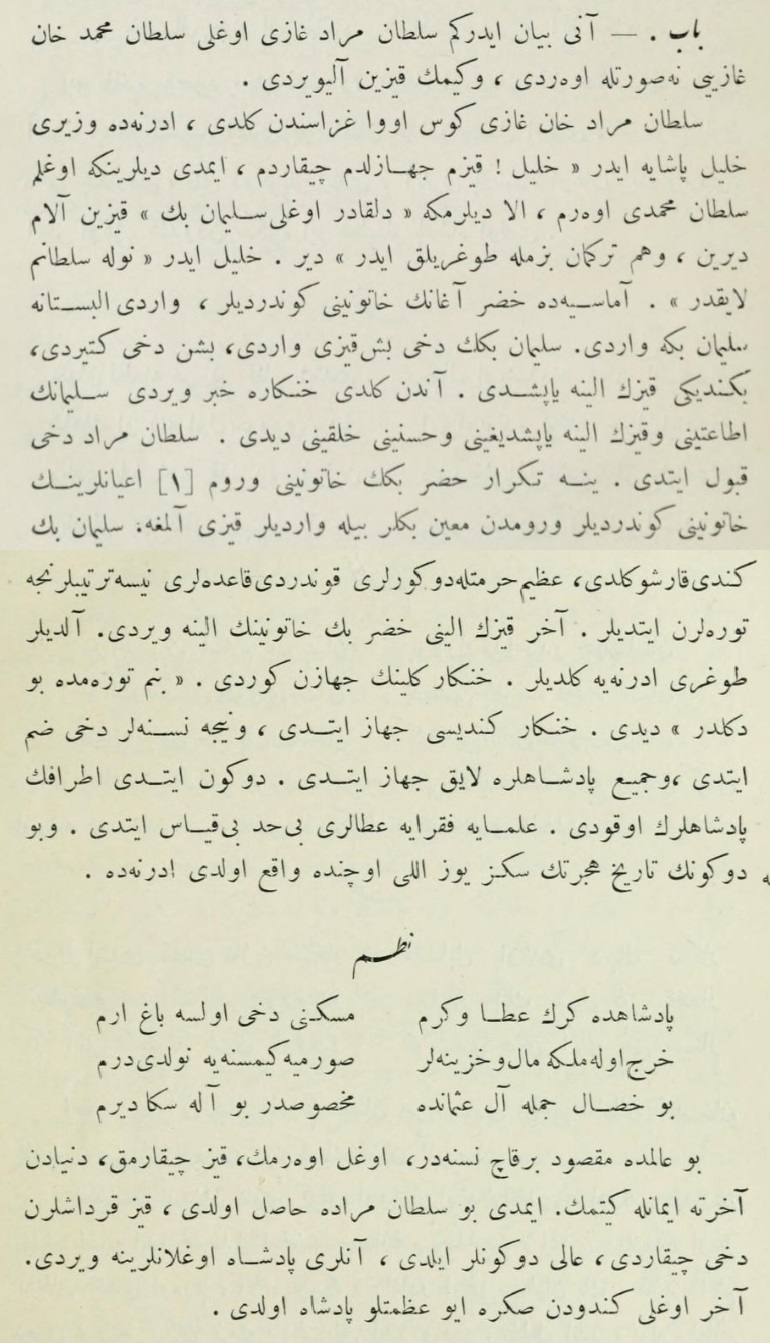 باب . — آنی بیان ایدرکم سلطان مراد غازی اوغلی سلطان محمد خان
غازیی نه‌صورتله اوه‌ردی ، وکیمك قیزین آلیویردی .
سلطان مراد خان غازی کوس اووا غزاسندن کلدی ، ادرنه‌ده وزیری
خلیل پاشایه ایدر « خلیل ! قیزم جهازلدم چیقاردم ، ایمدی دیلرینکه اوغلم
سلطان محمدی اوه‌رم ، الا دیلرمکه « دلقادر اوغلی سلیمان بك » قیزین آلام
دیرین ، وهم ترکمان بزمله طوغریلق ایدر » دیر . خلیل ایدر « نوله سلطانم
لایقدر » . آماسیه‌ده خضر آغانك خاتونینی کوندردیلر ، واردی البستانه
سلیمان بکه واردی. سلیمان بکك دخی بش قیزی واردی، بشن دخی کتیردی،
بکندیکی قیزك الینه یاپشدی . آندن کلدی خنکاره خبر ویردی سلیمانك
اطاعتینی وقیزك الینه یاپشدیغینی وحسنینی خلقینی دیدی . سلطان مراد دخی
قبول ایتدی . ینه تکرار حضر بکك خاتونینی وروم [۱] اعیانلرینك
خاتونینی کوندردیلر ورومدن معین بکلر بیله واردیلر قیزی آلمغه. سلیمان بك
کندی قارشوکلدی، عظیم حرمتله‌دوکورلری قوندردی قاعده‌لری نیسه‌ترتیبلرنجه
توره‌لرن ایتدیلر . آخر قیزك الینی خضر بك خاتونینك الینه ویردی. آلدیلر
طوغری ادرنه‌یه کلدیلر . خنکار کلینك جهازن کوردی . « بنم توره‌مده بو
دکلدر » دیدی . خنکار کندیسی جهاز ایتدی ، ونیجه نسنه‌لر دخی ضم
ایتدی ،وجمیع پادشاهلره لایق جهاز ایتدی . دوکون ایتدی اطرافك
پادشاهلرك اوقودی . علمایه فقرایه عطالری بی‌حد بی‌قیاس ایتدی . وبو
دوکونك تاریخ هجرتك سکز یوز اللی اوچنده واقع اولدی ادرنه‌ده .
نظم
پادشاهده کرك عطا وکرم مسکنی دخی اولسه باغ ارم
خرج‌اوله‌ملکه مال‌وخزینه‌لر صورمیه‌کیمسنه‌یه نولدی‌درم
بو خصال جمله آل عثمانده مخصوصدر بو آله سکا دیرم
بو عالمده مقصود برقاچ نسنه‌در، اوغل اوه‌رمك، قیز چیقارمق، دنیادن
آخرته ایمانله کیتمك. ایمدی بو سلطان مراده حاصل اولدی ، قیز قرداشلرن
دخی چیقاردی ، عالی دوکونلر ایلدی ، آنلری پادشاه اوغلانلرینه ویردی.
آخر اوغلی کندودن صکره ایو عظمتلو پادشاه اولدی .